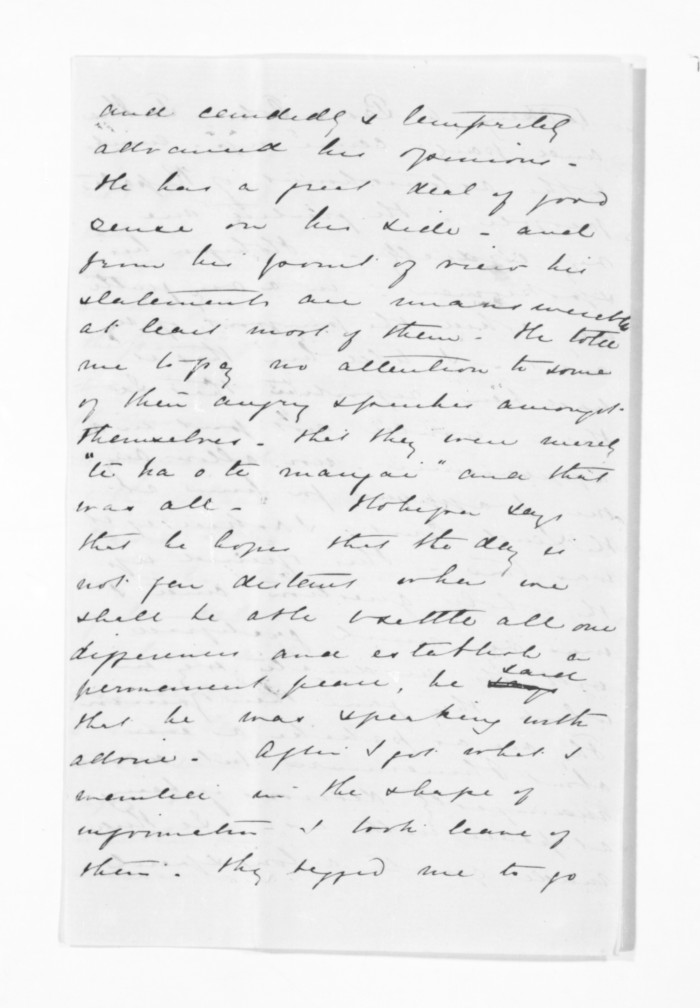 and candidly & temperately
advanced his opinions -
He has a great deal of good
sence on his side - and
from his point of view his
statements are unanswerable
at least most of them - He told
me to pay no attention to some
of their angry speeches amongst
themselves - that they were merely
"te ha o te mangai" and that
was all - says
that he hopes that the day is
not far distant when we
shall be able to settle all our
differences and establish a
permanent peace, he says said
that he was speaking with
advice - After I got what I
wanted in the shape of
information I took leave of
them - they begged me to go